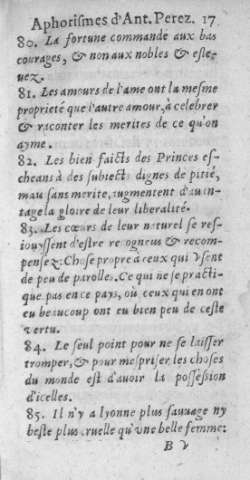 Aphorismes d'Ant. Perez. 17
80. La fortune commande aux bas
courages, & non aux nobles & esle-
uez.
81. Les amours de l'ame ont la mesme
proprieté que l'autre amour, à celebrer
& raconter les merites de ce qu'on
ayme.
82. Les bien faicts des Princes es-
cheans à des subiects dignes de pitié,
mau sans merite, augmentent d'auan-
tage la gloire de leur liberalité.
83. Les cœurs de leur naturel se res-
iouyssent d'estre recogneus & recom-
pensez: Chose propre à ceux qui vsent
de peu de parolles. Ce qui ne se practi-
que pas en ce pays, où ceux qui en ont
eu beaucoup ont eu bien peu de ceste
vertu.
84. Le seul point pour ne se laisser
tromper, & pour mespriser les choses
du monde est d'auoir la possession
d'icelles.
85. Il n'y a lyonne plus sauuage ny
beste plus cruelle qu'vne belle femme:
B v